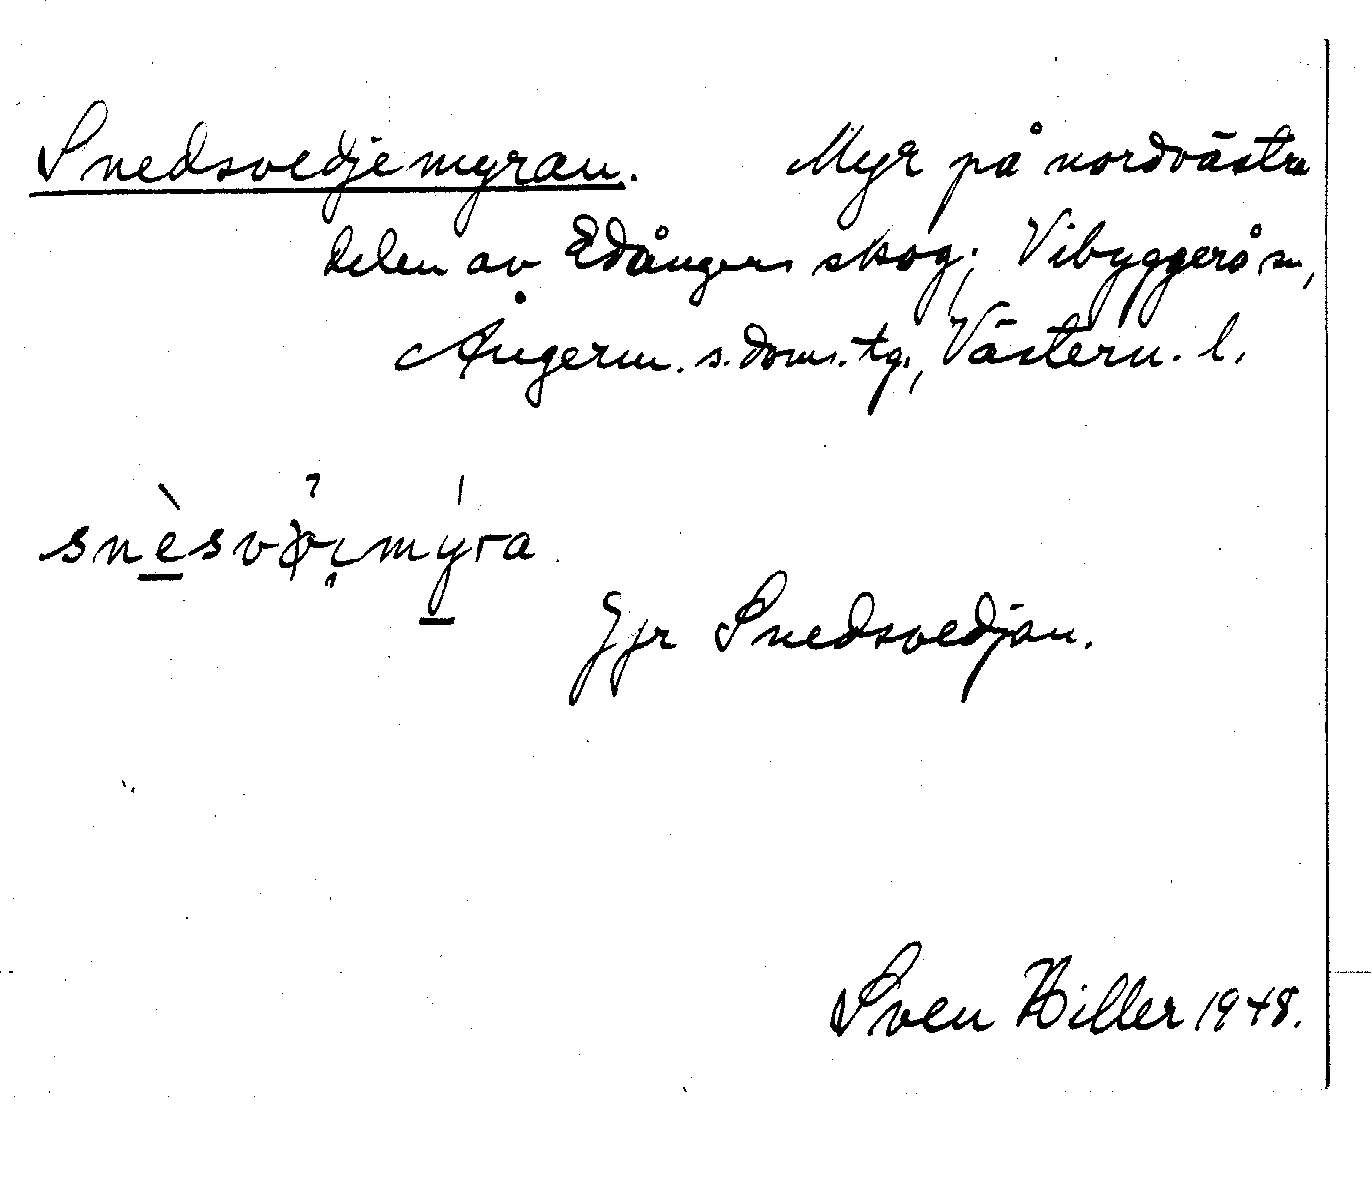 Snedsvedjemyran. Myr på nordvästra
delen av Edångers skog; Vibyggerå sn,
Ångerm. s. doms. tg., Västern. l.
Jfr Snedsvedjan.
Sven Hiller 1948.